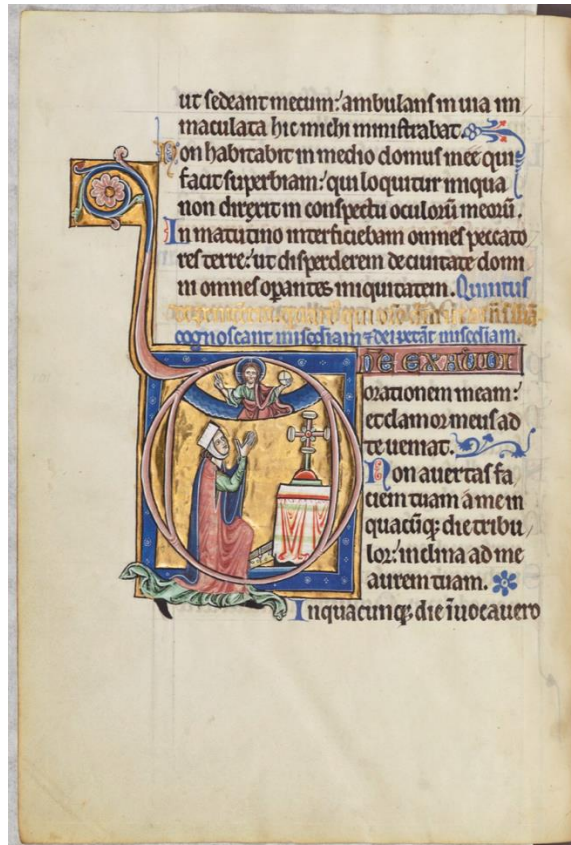 ut sedeant mecum: ambulans in uia in
maculata hic michi ministrabat.
Non habitabit in medio domus mee qui
facit superbiam: qui loquitur iniqua
non direxit in conspectu oculorū meorū.
In matutino interficiebam omnes peccato
res terre: ut disperderem de ciuitate domi
ni omnes opantes iniquitatem. Quintus
qui
cognoscant
DNE EXAUDI
orationem meam:
et clamor meus ad
te ueniat.
Non auertas fa
ciem tuam a me in
quacūq; die tribu
lor: inclina ad me
aurem tuam.
In quacunq; die īuocauero